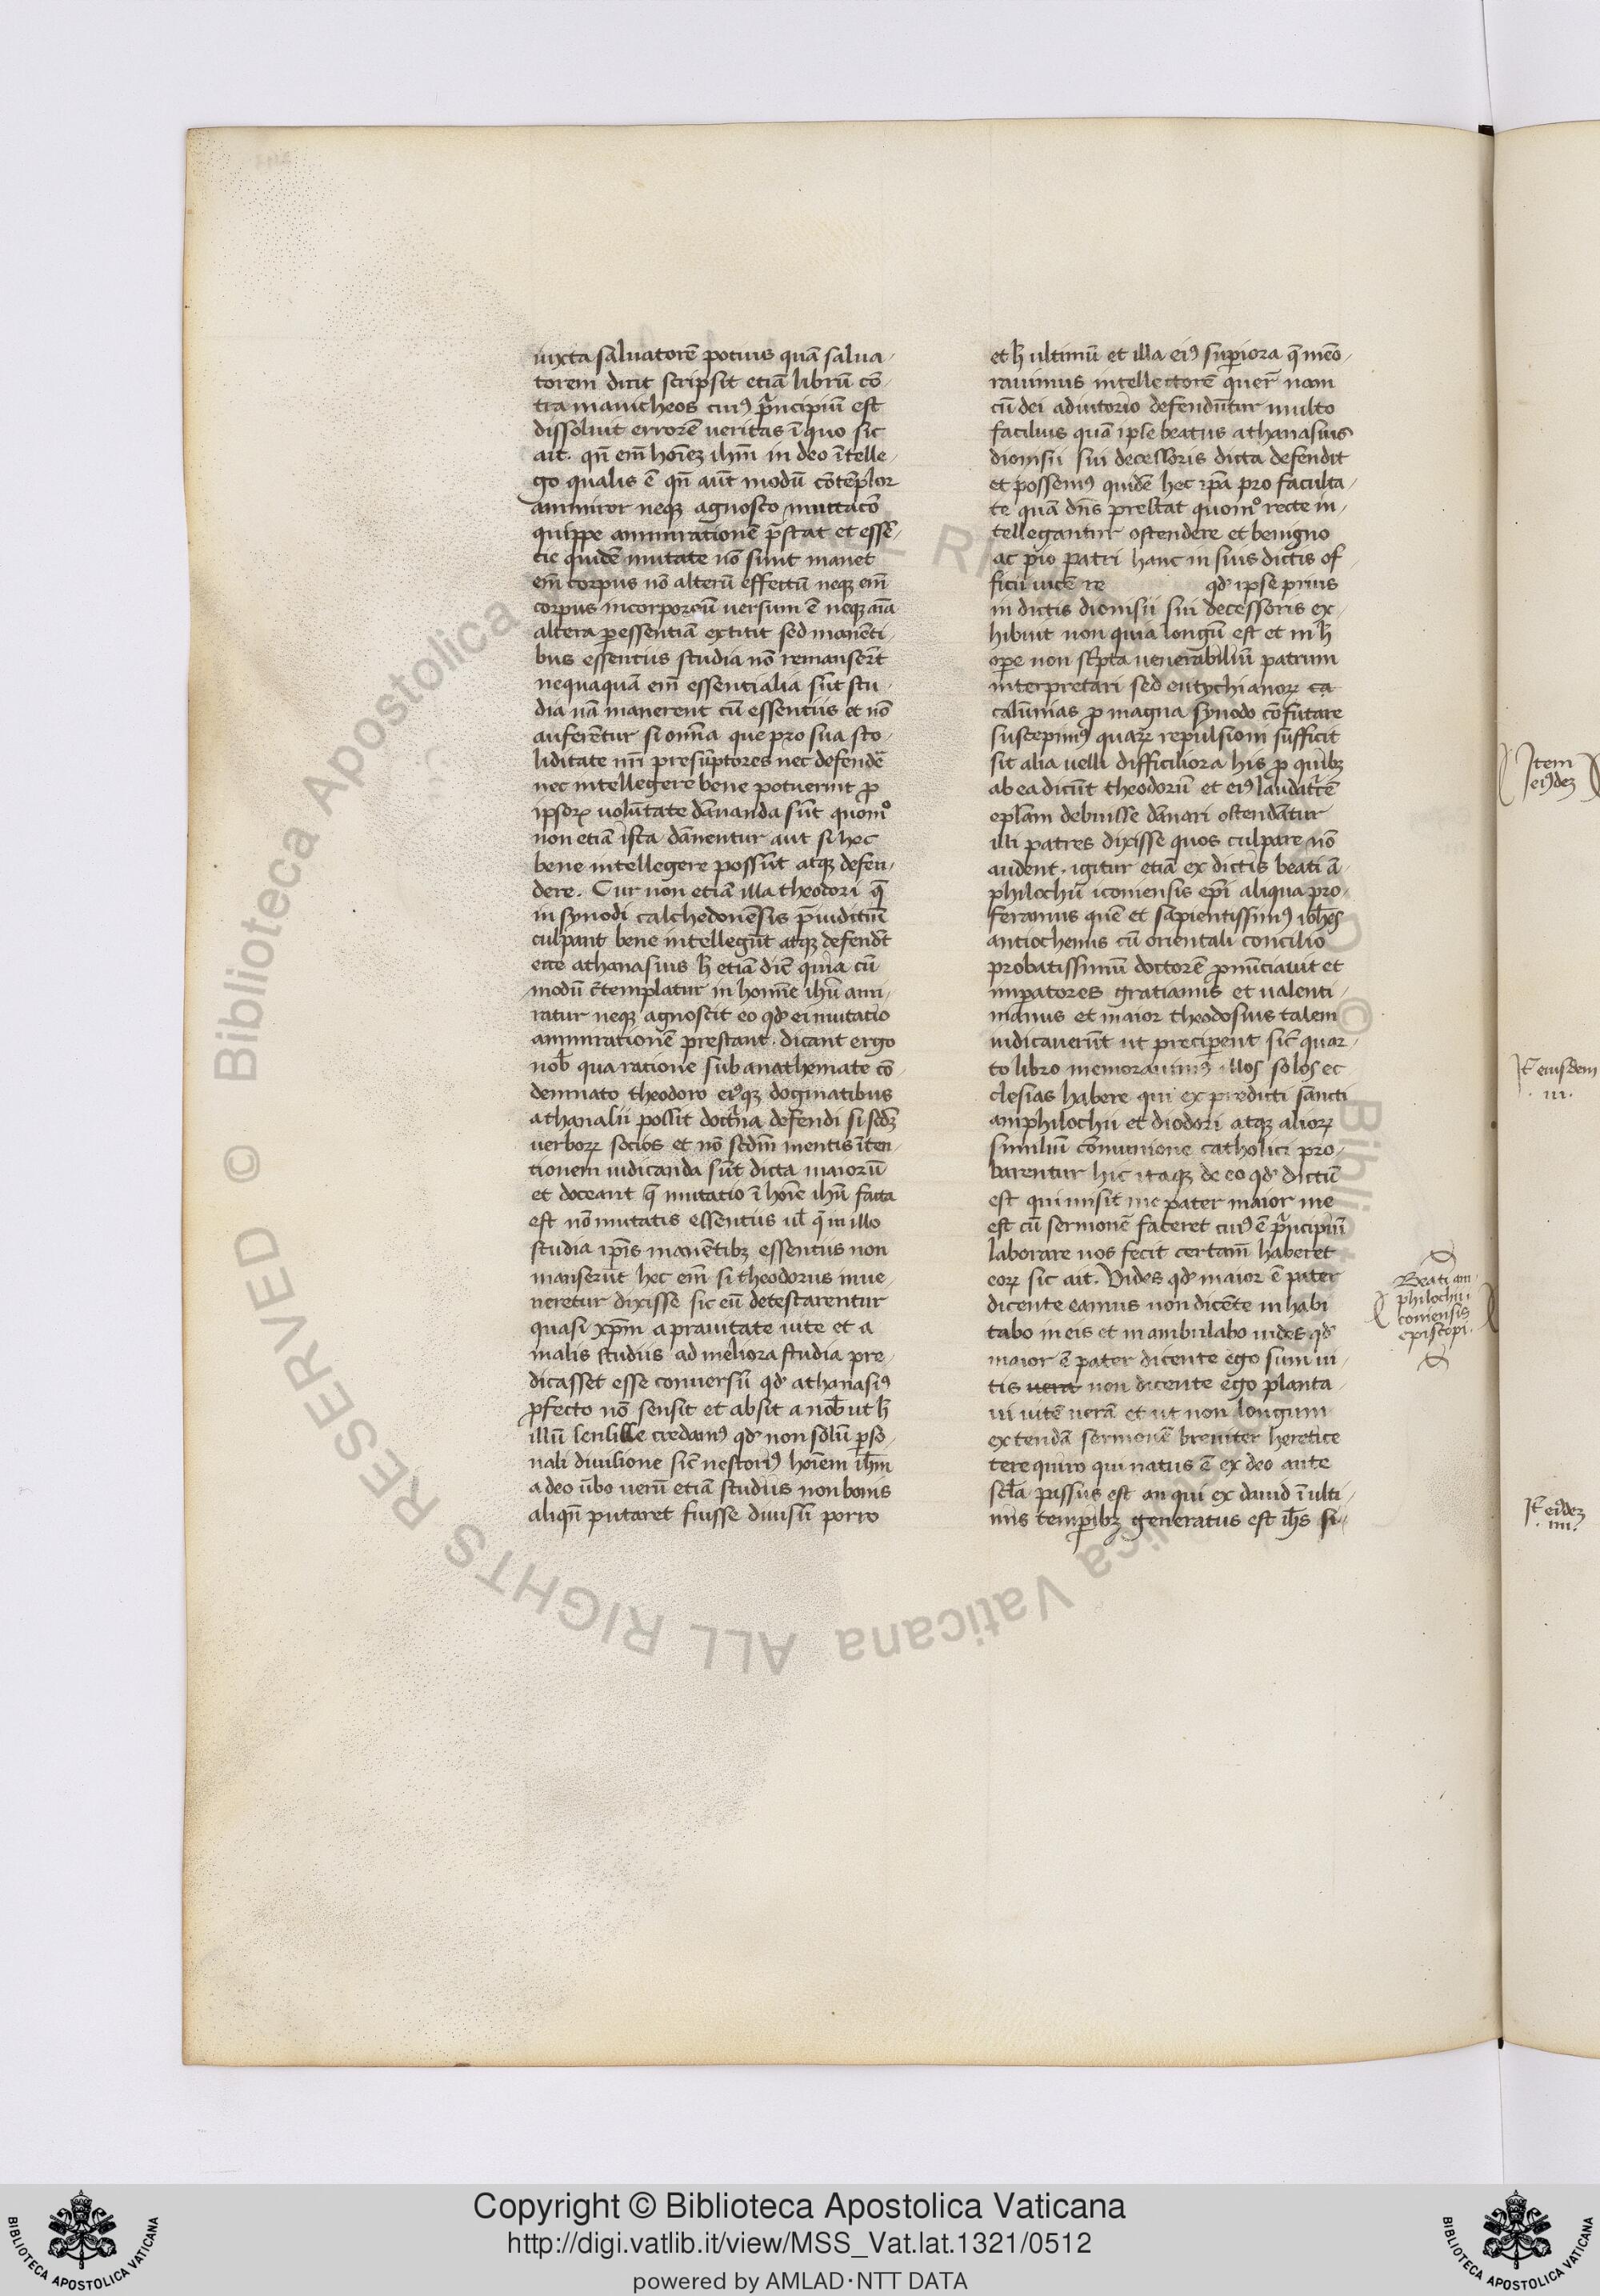 iuxta saluatorē potius quā salua-
torem dicit scripsit etiā librū cō-
tra manicheos cui9 pͥncipiū est
dissoluit errorē ueritas ī quo sic
ait. qn̄ em̄ hoīeꝫ ihm̄ in deo ītelle-
go qualis ē qn̄ aūt modū cōtēplor
ammiror neqꝫ agnosco mutacō
quippe ammirationē p̄stat et essē-
tie quidē mutate nō sunt manet
em̄ corpus nō alterū effectū neqꝫ em̄
corpus incorporeū uersum ē neqꝫ aīa
altera ꝑ essentiā extitit sed manēti-
bus essentiis studia nō remanserūt
nequaquā em̄ essentialia sūt stu-
dia nā manerent cū essentiis et nō
auferētur si om̄ia que pro sua sto-
liditate nr̄i presūptores nec defendē
nec intellegere bene potuerint ꝓ
ipsoꝝ uolūtate dānanda sūt quomͦ
non etiā ista dānentur aut si hec
bene intellegere possūt atqꝫ defen-
dere. Cur non etiā illa theodori q̄
in synodi calchedonēsis p̄iudiciū
culpant bene intellegūt atqꝫ defendūt
ecce athanasius h̄ etiā diē quia cū
modū cōtemplatur in homīe ihū am-
ratur neqꝫ agnoscit eo qd' ei mutatio
ammirationē prestant. dicant ergo
nob̄ qua ratione sub anathemate cō-
demnato theodoro ei9qꝫ dogmatibus
athanasii possit doctͥna defendi si scd̄ꝫ
uerboꝝ socios et nō scdm̄ mentis īten-
tionem iudicanda sūt dicta maiorū
et doceant q̄ mutatio ī hoīe ihū facta
est nō mutatis essentiis ul̄ q̄ in illo
studia ip̄is manētibꝫ essentiis non
manserūt hec em̄ si theodorus inue-
neretur dixisse sic eū detestarentur
quasi xp̄m a prauitate uite et a
malis studiis ad meliora studia pre-
dicasset esse conuersū qd' athanasi9
ꝓfecto nō sensit et absit a nob̄ ut h̄
illū sensisse credam9 qd' non solū ꝑso-
nali diuisione sic̄ nestori9 hoīem ih̄m
a deo ūbo uerū etiā studiis non bonis
aliqn̄ putaret fuisse diuisū porro
et h̄ ultimū et illa ei9 superiora q̄ memo-
rauimus intellectorē quer̄ nam
cū dei adiutorio defendūtur multo
facilius quā ipse beatus athanasius
dionisii sui decessoris dicta defendit
et possem9 quidē hec ip̄a pro faculta-
te quā dn̄s prestat quomͦ recte in-
tellegantur ostendere et benigno
ac pio patri hanc in suis dictis of
ficii uicē re qd' ipse prius
in dictis dionisii sui decessoris ex-
hibuit non quia longū est et in h̄
oꝑe non sc̄pta uenerabiliū patrum
interpretari sed eutychianoꝝ ca
calūnias ꝓ magna synodo cōfutare
suscepim9 quaꝝ repulsioni sufficit
sit alia uelli difficiliora his ꝓ quibꝫ
ab ea dicūt theodorū et ei9 laudatͥcē
epl̄am debuisse dānari ostendātur
illi patres dixisse quos culpare nō
audent. igitur etiā ex dictis beati ā-
philochii iconiensis epī aliqua pro-
feramus quē et sapientissim9 ioh̄es
antiochenus cū orientali concilio
probatissimū doctorē ꝓnūciauit et
imꝑatores gratianus et ualenti-
nianus et maior theodosius talem
iudicauerūt ut preciperent sic̄ quar-
to libro memorauim9 illos solos ec
clesias habere qui ex predicti sancti
amphilochii et diodori atqꝫ alioꝝ
similiū cōmunione catholici pro-
barentur hic itaqꝫ de eo qd' dictū
est qui misit me pater maior me
est cū sermonē faceret cui9 ē pͥncipiū
laborare nos fecit certam̄ haberet
eoꝝ sic ait. Uides qd' maior ē pater
dicente eamus non dicēte inhabi
tabo in eis et inambulabo uides qd'
maior ē pater dicente ego sum ui-
tis uera non dicente ego planta-
ui uitē uerā et ut non longum
extendā sermonē breuiter heretice
te requiro qui natus ē ex deo ante
scl̄a passus est an qui ex dauid ī ulti-
mis temporibꝫ generatus est ih̄s si-
Item
ei9deꝫ
It̄ eiusdem
.iii.
Beati am
philochii
coniensis
episcopi.
It̄ ei9deꝫ
.iiii.
© Biblioteca Apostolica Vaticana ALL RIGHTS RESERVED
Copyright © Biblioteca Apostolica Vaticana
http://digi.vatlib.it/view/MSS_Vat.lat.1321/0512
powered by AMLAD·NTT DATA
BIBLIOTECA APOSTOLICA VATICANA
BIBLIOTECA APOSTOLICA VATICANA